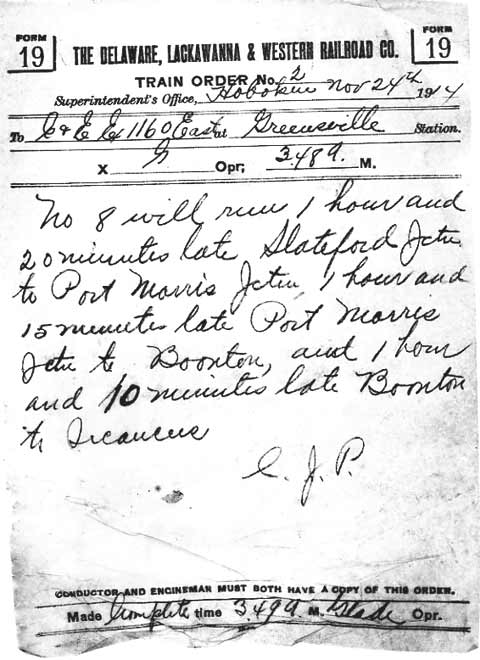 FORM 19
THE DELAWARE, LACKAWANNA & WESTERN RAILROAD CO.
FORM 19
TRAIN ORDER No. 2
Superintendent's Office, Hoboken Nov 24th 1914
To C & E Ex 1160 East at Greensville Station.
X G Opr; 3.48 A. M.
No 8 will run 1 hour and
20 minutes late Slateford Jctn
to Port Morris Jctn, 1 hour and
15 minutes late Port Morris
Jctn to Boonton, and 1 hour
and 10 minutes late Boonton
to Secaucus
C. J. P.
CONDUCTOR AND ENGINEMAN MUST BOTH HAVE A COPY OF THIS ORDER.
Made Complete time 3.49 A. M. Slade Opr.